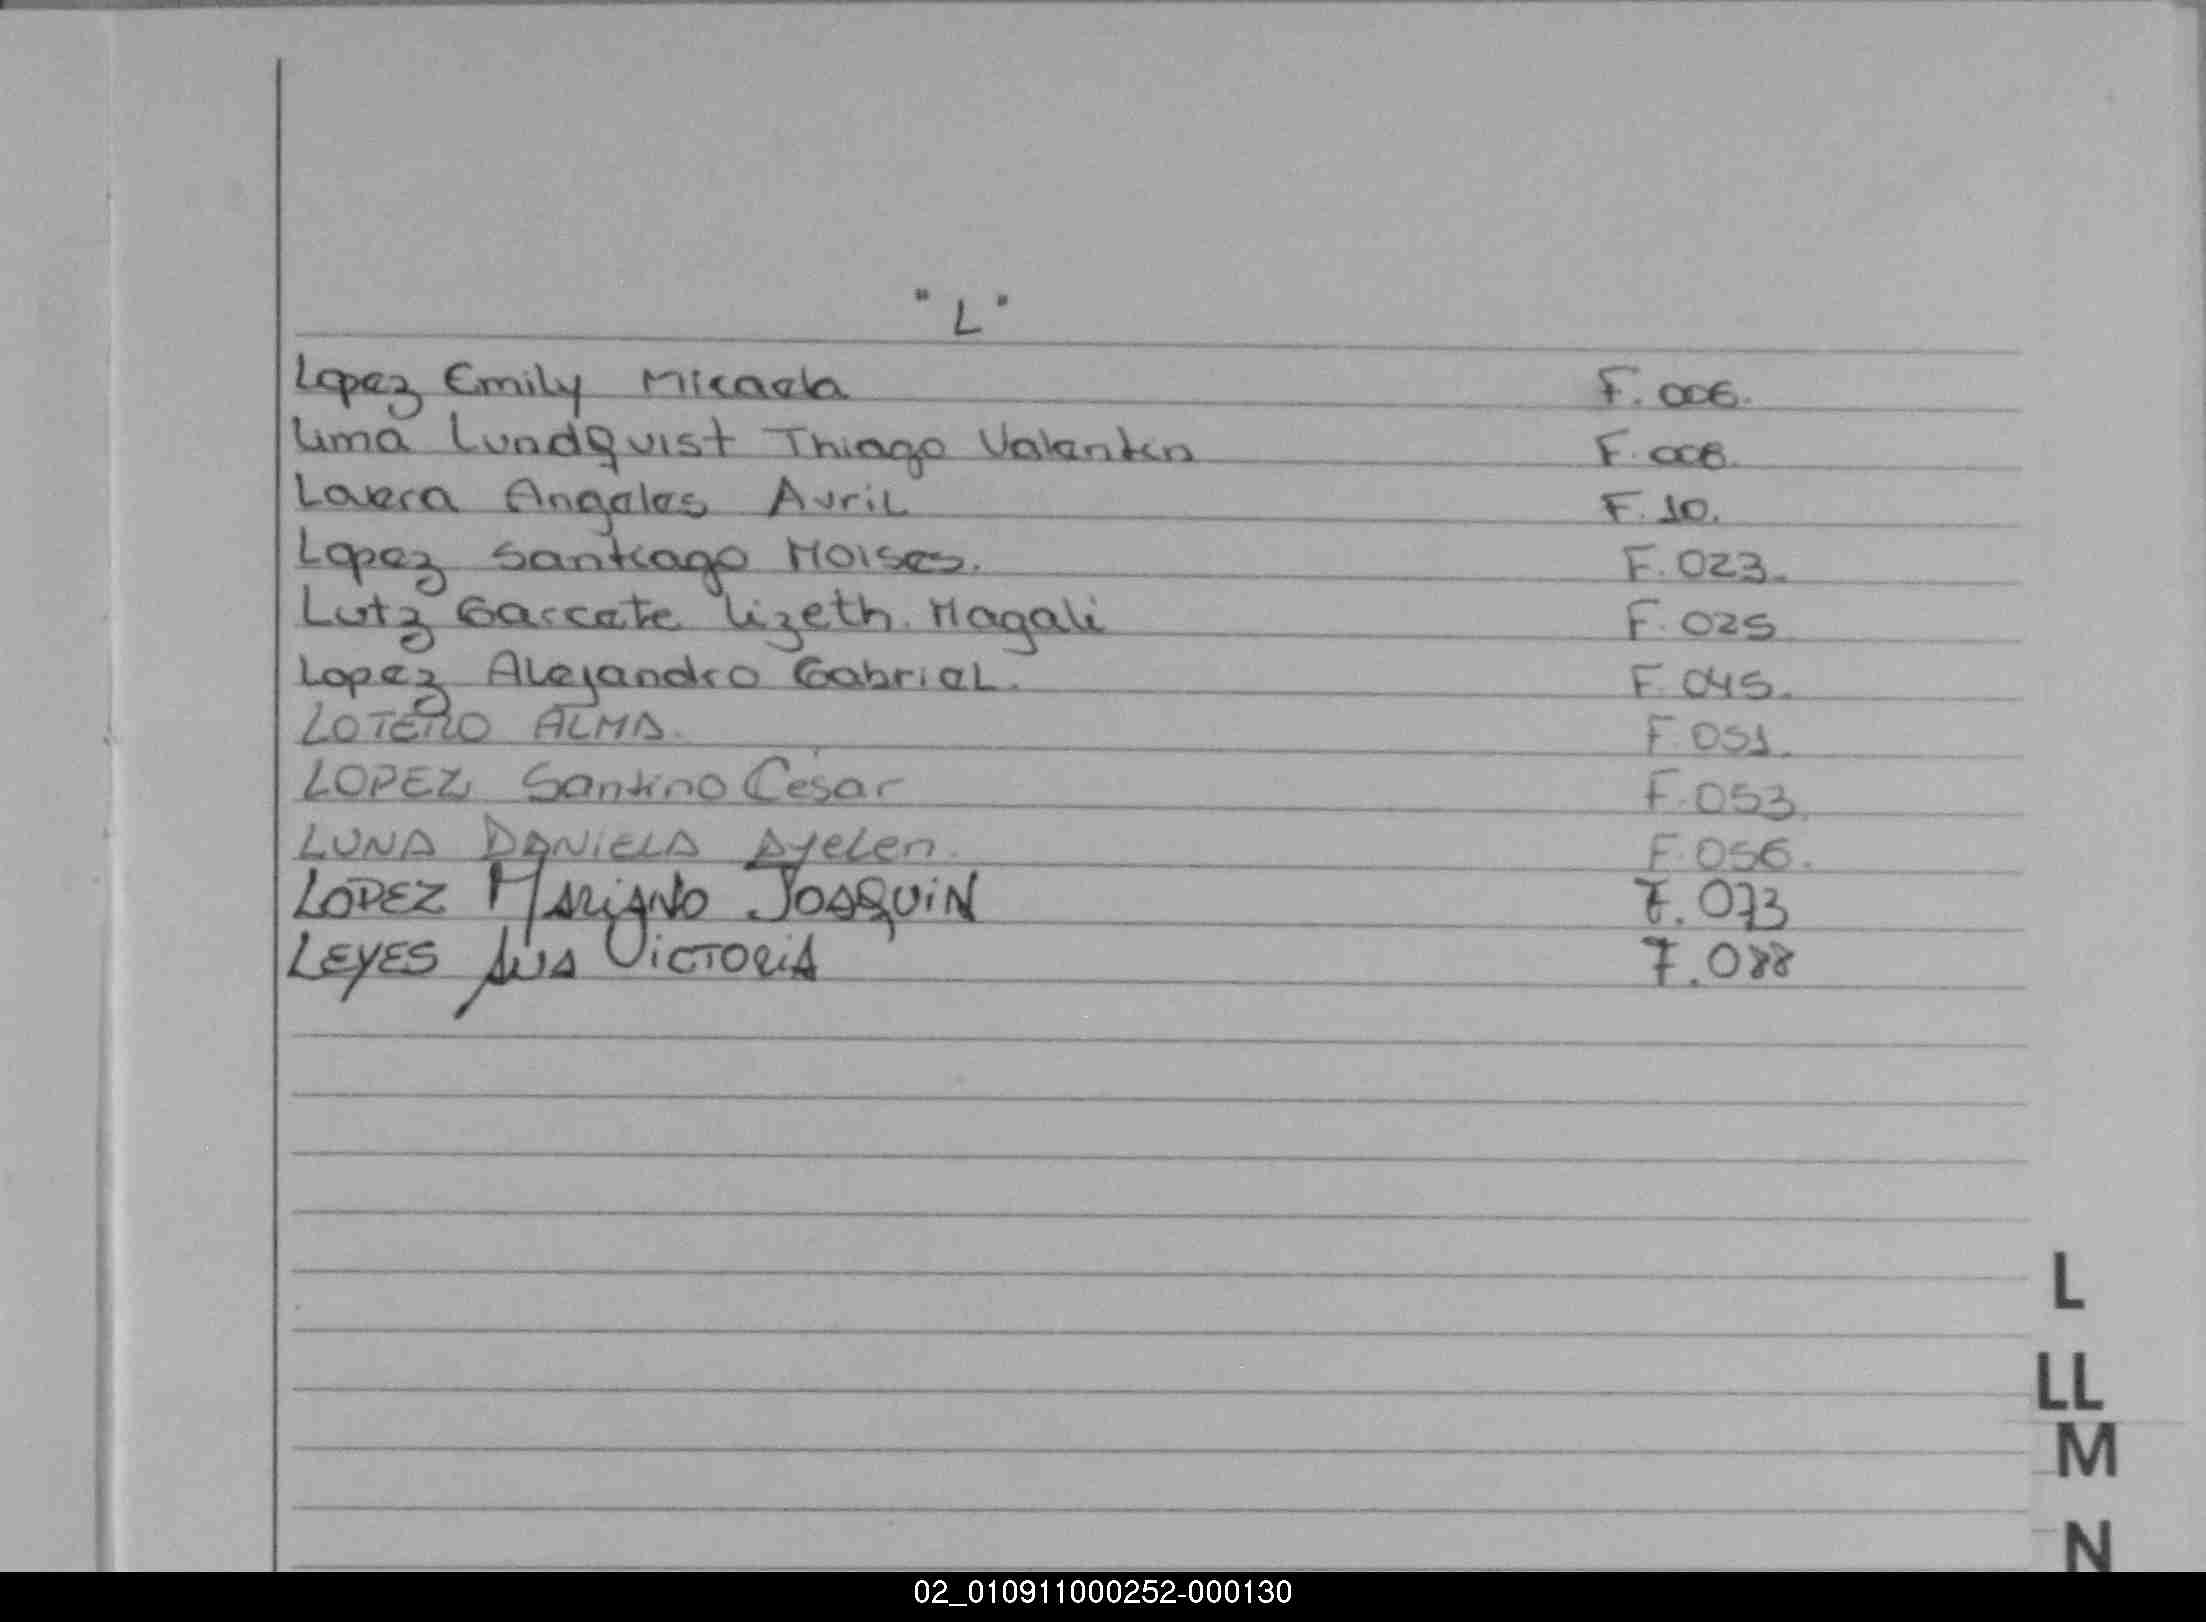 "L"
Lopez Emily Micaela F. 006.
Lima Lundquist Thiago Valentin F. 008.
Lavera Angeles Avril F. 10.
Lopez Santiago Moises. F. 023.
Lutz Garcete Lizeth Magali F. 025
Lopez Alejandro Gabriel. F. 045.
LOTERO ALMA. F. 051.
LOPEZ Santino César F. 053.
LUNA DANIELA Ayelen. F. 056.
LOPEZ MARIANO JOAQUIN F. 073
LEYES ANA VICTORIA F. 088
L
LL
M
N
02_010911000252-000130